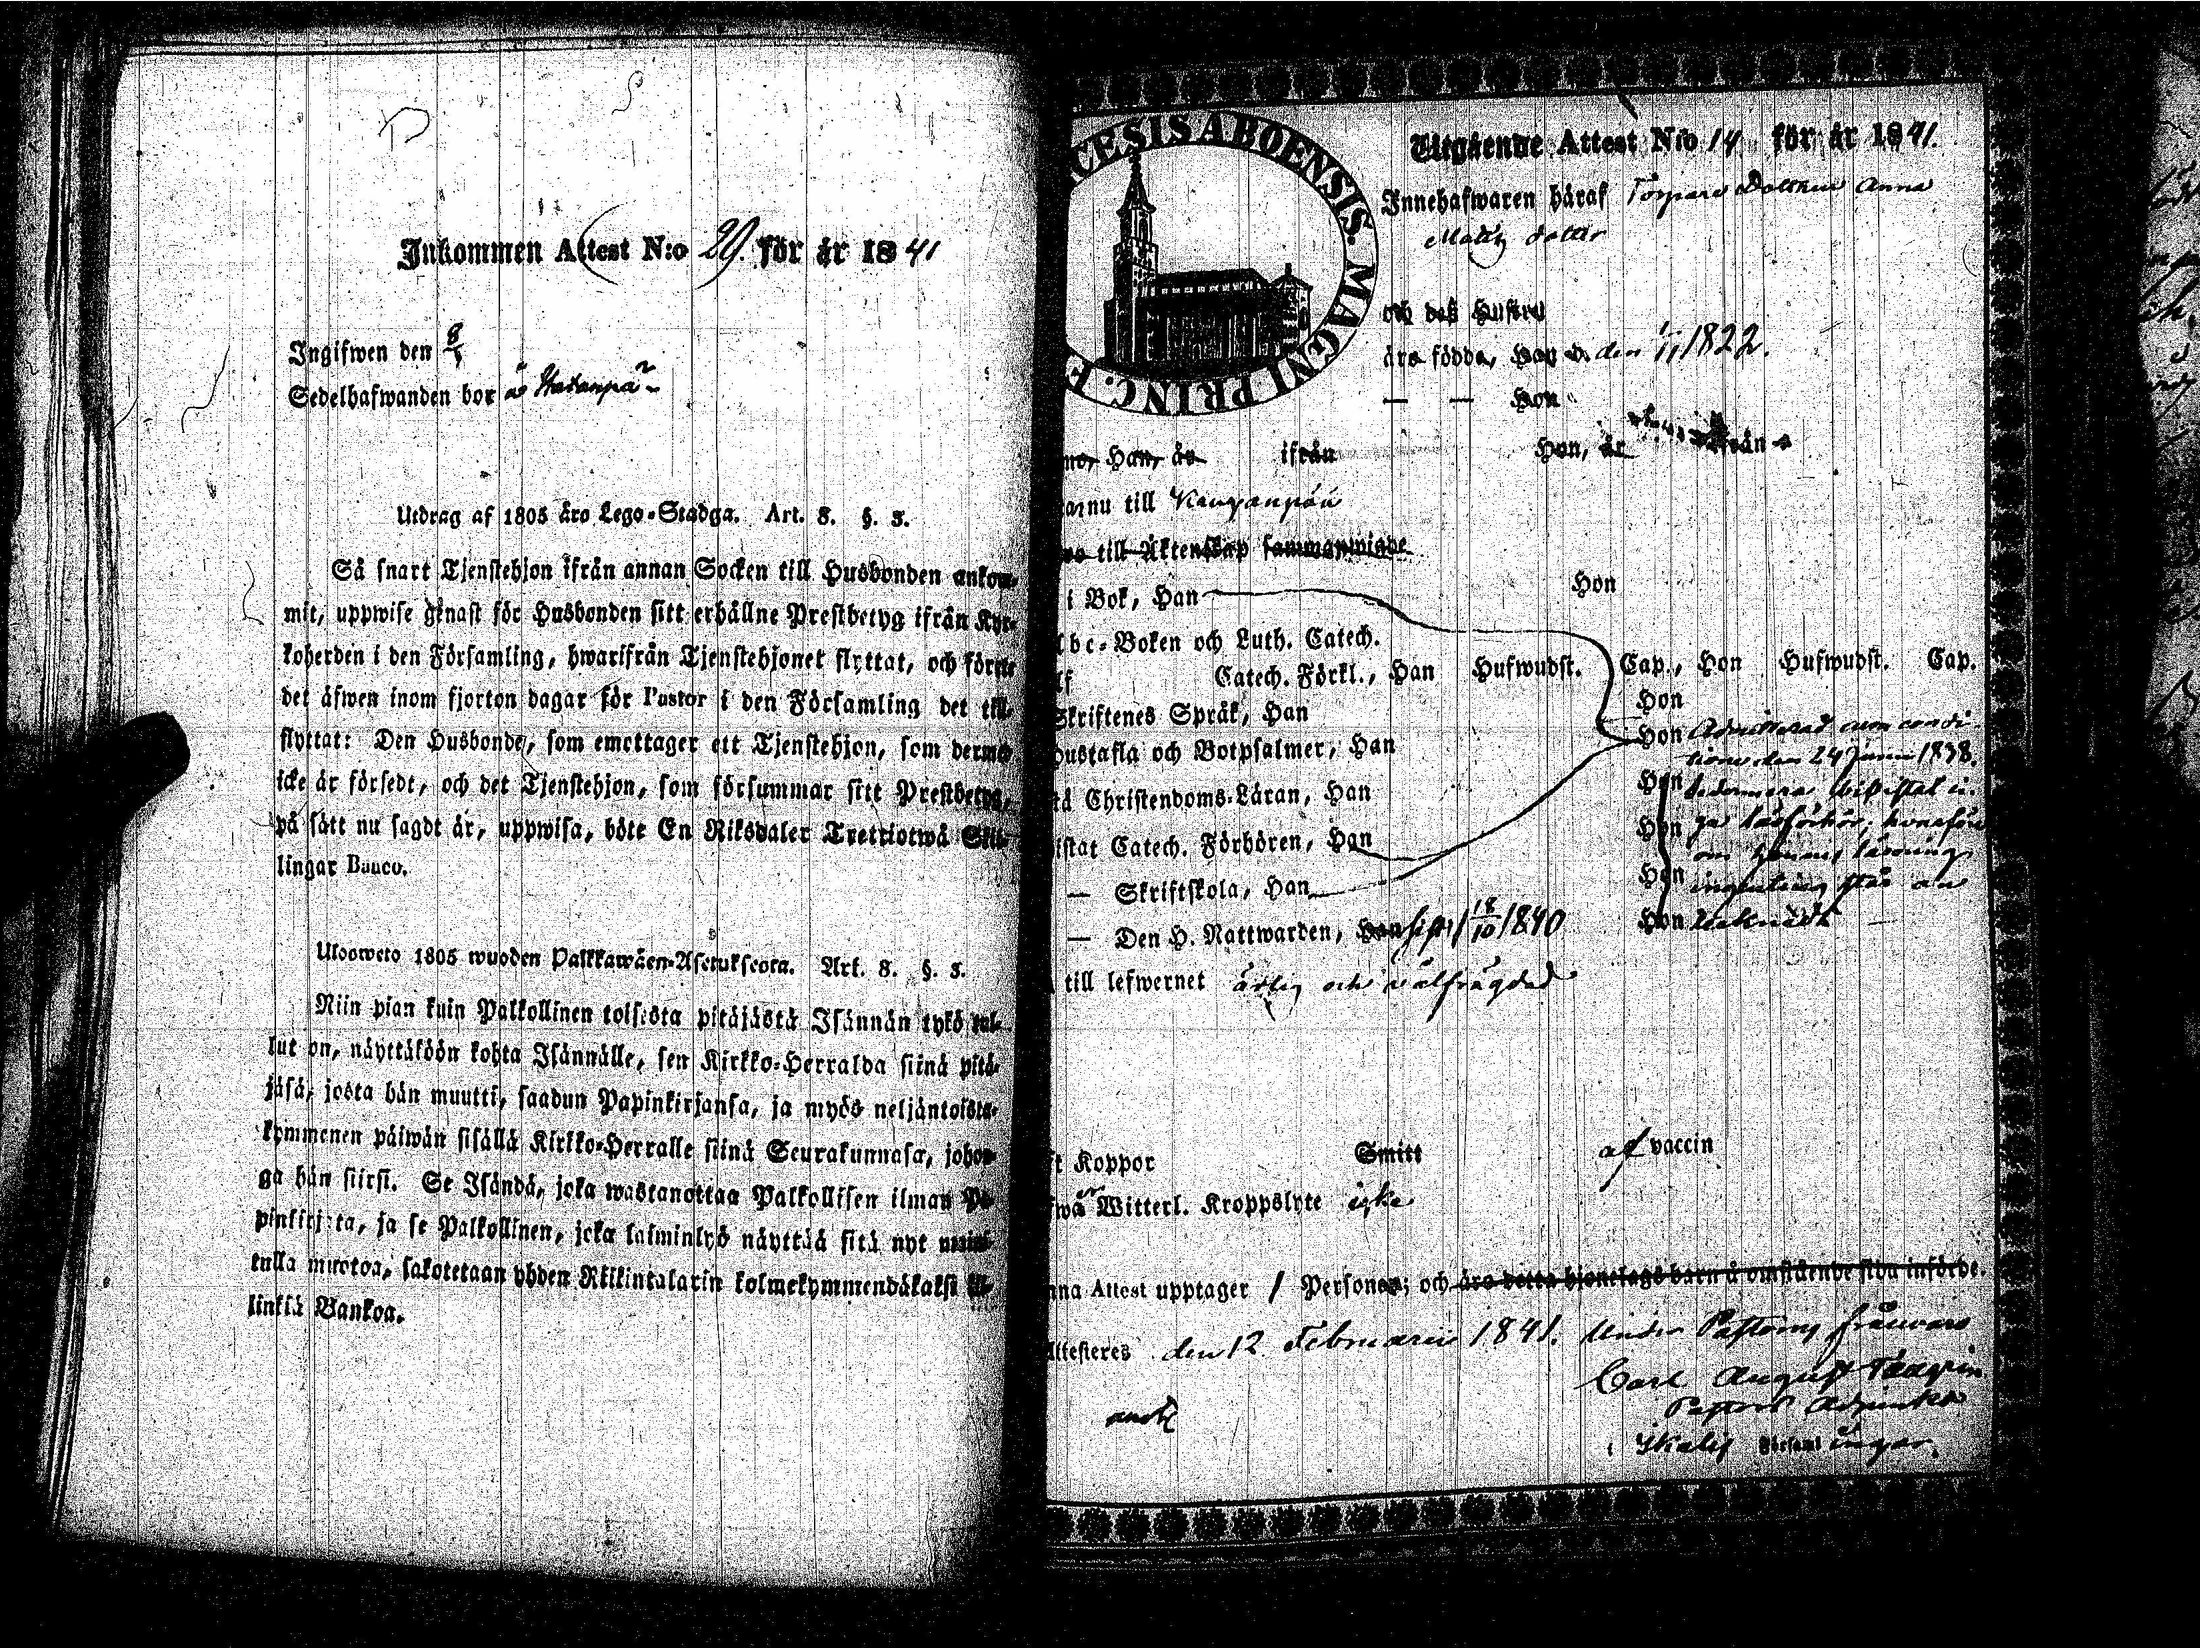 Inkommen Attest N:o 29. för år 1841
Ingifwen den 8/
Sedelhafwanden bor å
Utdrag af 1805 års Lego-Stadga. Art. 8. §. 3.
Så snart Tjenstehjon ifrån annan Socken till Husbonden ankom-
mit, uppwise genast för Husbonden sitt erhållne Prestbetyg ifrån Kyr-
koherden i den Församling, hwarifrån Tjenstehjonet flyttat, och förete
det äfwen inom fjorton dagar för Pastor i den Församling det till-
flyttat: Den Husbonde, som emottager ett Tjenstehjon, som dermed
icke är försedt, och det Tjenstehjon, som försummar sitt Prestbetyg,
på sätt nu sagdt är, uppwisa, böte En Riksdaler Trettiotwå Skil-
lingar Banco.
Uloosweto 1805 wuoden Palkkawäen-Asetuksesta. Art. 8. §. 3.
Niin pian kuin Palkollinen toisesta pitäjästä Isännän tykö tul-
lut on, näyttäköön kohta Isännälle, sen Kirkko-Herralda siinä pitä-
jäsä, josta hän muutti, saadun Papinkirjansa, ja myös neljäntoista-
kymmenen päiwän sisällä Kirkko-Herralle siinä Seurakunnasa, johon-
ga hän siirsi. Se Isändä, joka wastanottaa Palkollisen ilman Pa-
pinkirjata, ja se Palkollinen, joka laiminlyö näyttää sitä nyt
tulla muotoa, sakotetaan yhden Riikintalarin kolmekymmendäkaksi Kil-
linkiä Bankoa.
CESIS ABOENSIS. MAGNI PRINC. F
Utgående Attest N:o 14 för år 1841.
Innehafwaren häraf Torpare Dottren Anna
Matts dotter
och deß Hustru
äro födde, Han d. den 1/11 1822.
— — Hon
Han, är ifrån Hon, är ifrån
nu till Kanganpää
till Äktenskap sammanwigde
i Bok, Han Hon
bc-Boken och Luth. Catech.
Catech. Förkl., Han Hufwudst. Cap., Hon Hufwudst. Cap.
Skriftenes Språk, Han Hon
Hustafla och Botpsalmer, Han Hon Admitterad cum condi-
tione den 24 Juni 1838.
Christendoms-Läran, Han Hon sedermera bevistat in-
istat Catech. Förhören, Han Hon ga läsförhör, hvarföre
om hennes läsning
— Skriftskola, Han Hon ingenting står an
— Den H. Nattwarden, Han sist 18/10 1840 Hon
till lefwernet ärlig och välfrägdad
Koppor Smitt af vaccin
Witterl. Kroppslyte icke
nna Attest upptager 1 Personer; och äro detta hjonelags barn å omstående sida införde.
Attesteres den 12 Februarii 1841. Under Pastoris frånvaro
Carl August
Pastors Adjunkt
i Ikalis Församlingar.